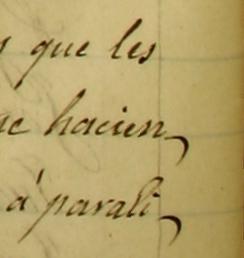 que les
hacien
á parali